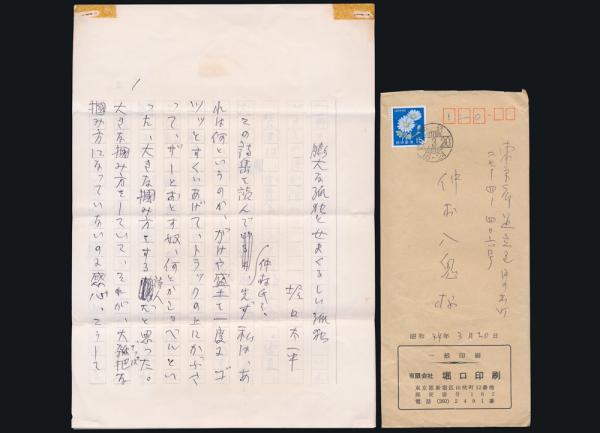 膨大な孤独とせまくるしい孤独
堀口太平
この詩集を読んで 先ず私は、あ
れは何というのか、がけや盛土を一度に
ツッとすくいあげて、トラックの上にかぶさ
って、ザーとおとす奴、何とかしょべんとい
った、大きな掴み方をする詩人だと思った。
大きな掴み方をしていて、それが、大雑把な
掴み方になっていないのに感心、こうして
15
東京都足立区
仲村八鬼様
昭和44年3月20日
一般印刷
有限会社 堀口印刷
東京都新宿区山吹町12番地
郵便番号 162
電話 (260) 2491番